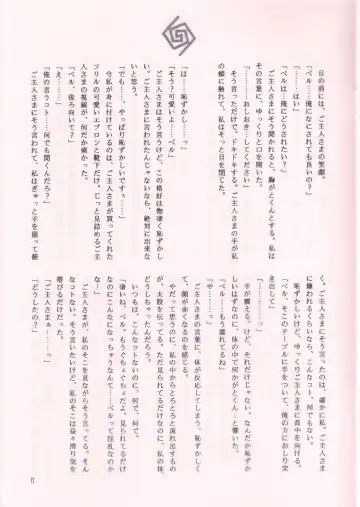 目の前には、ご主人さまの笑顔。
「ベルは…俺にどうされたい?」
「……はい」
「ベル……。俺になにされても良いの?」
「……………っ」
ご主人さまにそう聞かれると、胸がとくんとする。私は
その言葉に、ゆっくりと口を開いた。
「……おしおき…してください」
そう言っただけで、ドキドキする。ご主人さまの手が私
の頬に触れて、私はそっと目を閉じた。
「は……、恥ずかし……っ」
「そう?可愛いよ……ベル」
ご主人さまはそう言うけど、この格好は物凄く恥ずかし
い。ご主人さまに言われたんじゃないなら、絶対に出来な
いと思う。
「でも……、やっぱり恥ずかしいです……っ」
今私が身に付けているのは、ご主人さまが買ってくれた
フリルの可愛いエプロンと靴下だけ。じっと見詰めるご主
人さまの視線が、何だか痛かった。
「ベル、後ろ向いて?」
「え……っ」
「俺の言うコト…何でも聞くんだろ?」
ご主人さまにそう言われて、私はぎゅっと手を握って俯
く。ご主人さまのそう言ったのは、確かに私。ご主人さま
に嫌われるくらいなら、こんなコト、何でもない。
恥ずかしいけど、ゆっくりご主人さまに背中を向ける。
「ベル、そこのテーブルに手をついて、俺の方におしり突
き出して」
「……………っ」
手が震える。けど、それだけじゃない。なんだか恥ずか
しいはずなのに、体の中で何かがとくん…と響いた。
「ベル…もう濡れてるね」
「や……っ」
ご主人さまの言葉に、体が反応してしまう。恥ずかしく
て、顔が赤くなるのを感じる。
やだって思うのに、私の中からとろとろと流れ出るもの
が、太股を伝ってる。ただ見られてるだけなのに、私の体、
どうしちゃったんだろう。
いつもは、こんなコトないのに。何で、何で。
「凄いね、ベル。もうぐちょぐちょだよ。見られてるだけ
なのにこんなになっちゃうなんて……ベルって淫乱なのか
な」
ご主人さまが、私のそこを見ながらそう言ってる。そん
なコトない。そう言いたいけど、私のそこは益々滑り気を
帯びるだけだった。
「ご主人さまぁ……っ」
「どうしたの?」